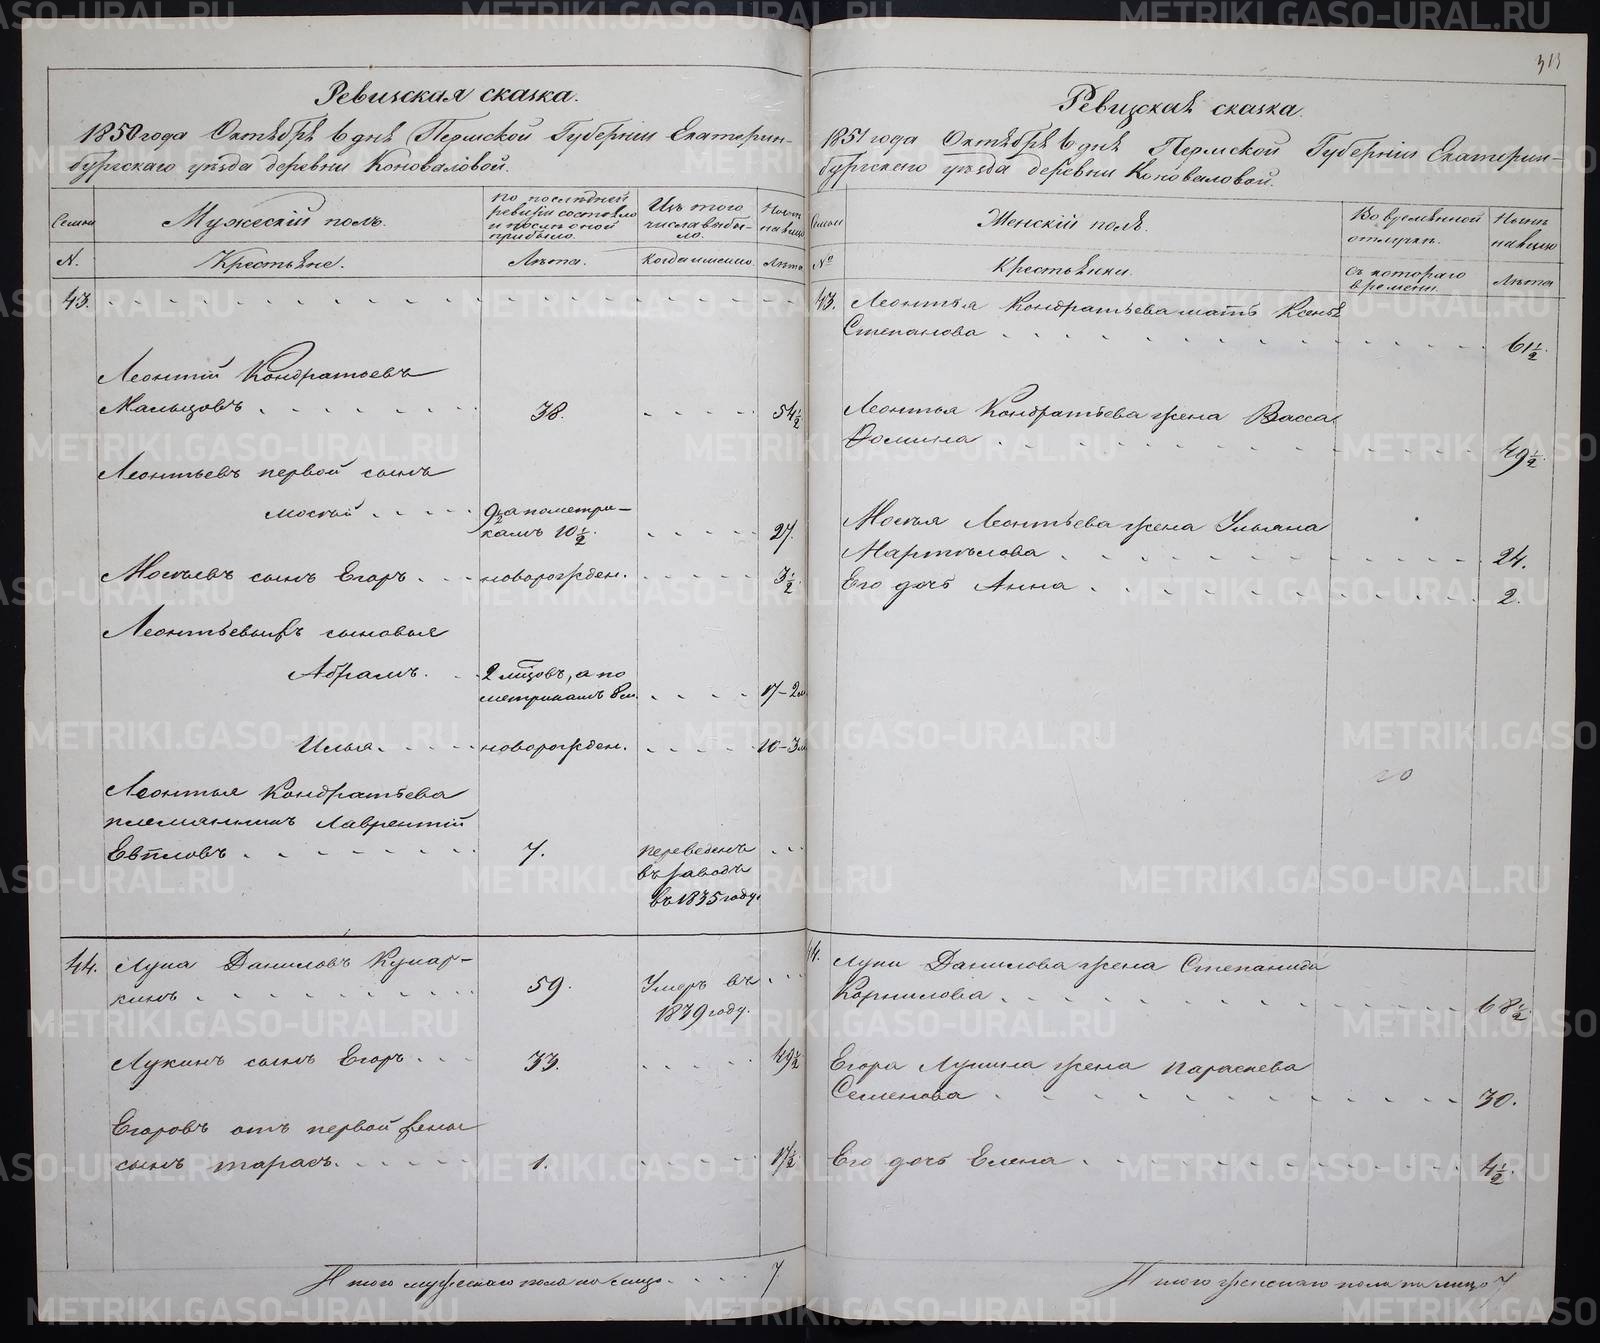 313
Ревизская сказка.
1850 года Октября 6 дня Пермской Губернии Екатерин-
бургскаго уѣзда деревни Коноваловой.
Семьи
Мужескій полъ.
По послѣдней
ревизіи состояло
и послѣ оной
прибыло.
Изъ того
числа выбы-
ло.
Нынѣ
на лицо
N.
Крестьяне.
Лѣта.
Когда именно.
Лѣта
43.
Леонтій Кондратьевъ
Мальцовъ
38.
54½
Леонтьевъ первой сынъ
Мосѣй
9½ а по метри-
камъ 10½.
27.
Мосѣевъ сынъ Егоръ
новорожден.
3½
Леонтьевыхъ сыновья
Абрамъ.
2 мѣсцовъ, а по
метрикамъ 8 м.
17-2 м
Илья
новорожден.
10-3 м
Леонтья Кондратьева
племянникъ Лаврентій
Евпловъ
7.
переведенъ
въ заводъ
въ 1835 году.
44.
Лука Даниловъ Кукар-
кинъ
59.
Умеръ въ
1839 году.
Лукинъ сынъ Егоръ
33.
49½
Егоровъ отъ первой жены
сынъ Тарасъ.
1.
17½
Итого мужескаго пола на лицо
7
Ревизская сказка.
1851 года Октября 6 дня Пермской Губерніи Екатерин-
бургскаго уѣзда деревни Коноваловой.
Семьи
Женскій полъ.
Во временной
отлучкѣ.
Нынѣ
на лицо
№
Крестьянки.
Съ котораго
времени.
Лѣта
43.
Леонтья Кондратьева мать Ксенья
Степанова
61½.
Леонтья Кондратьева жена Васса
Фомина
49½.
Мосѣя Леонтьева жена Ульяна
Мартѣлова
24.
Его дочь Анна
2.
44.
Луки Данилова жена Степанида
Корнилова
68½.
Егора Лукина жена Параскева
Семенова
30.
Его дочь Елена
4½.
Итого женскаго пола на лицо 7
METRIKI.GASO-URAL.RU